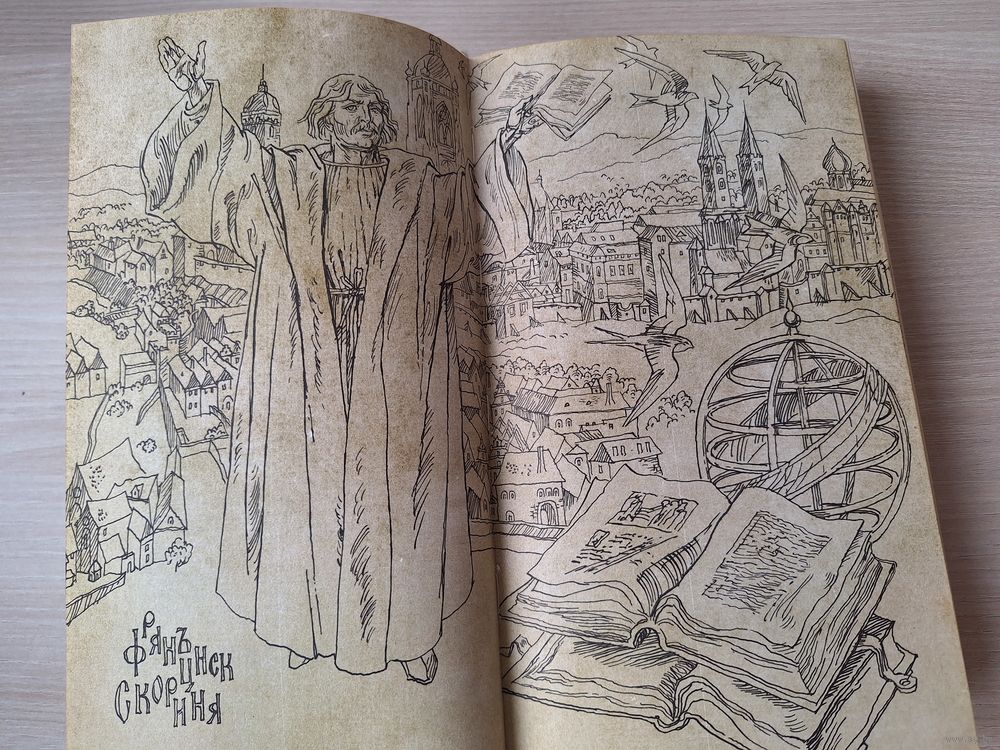 Франъциск
Скорина